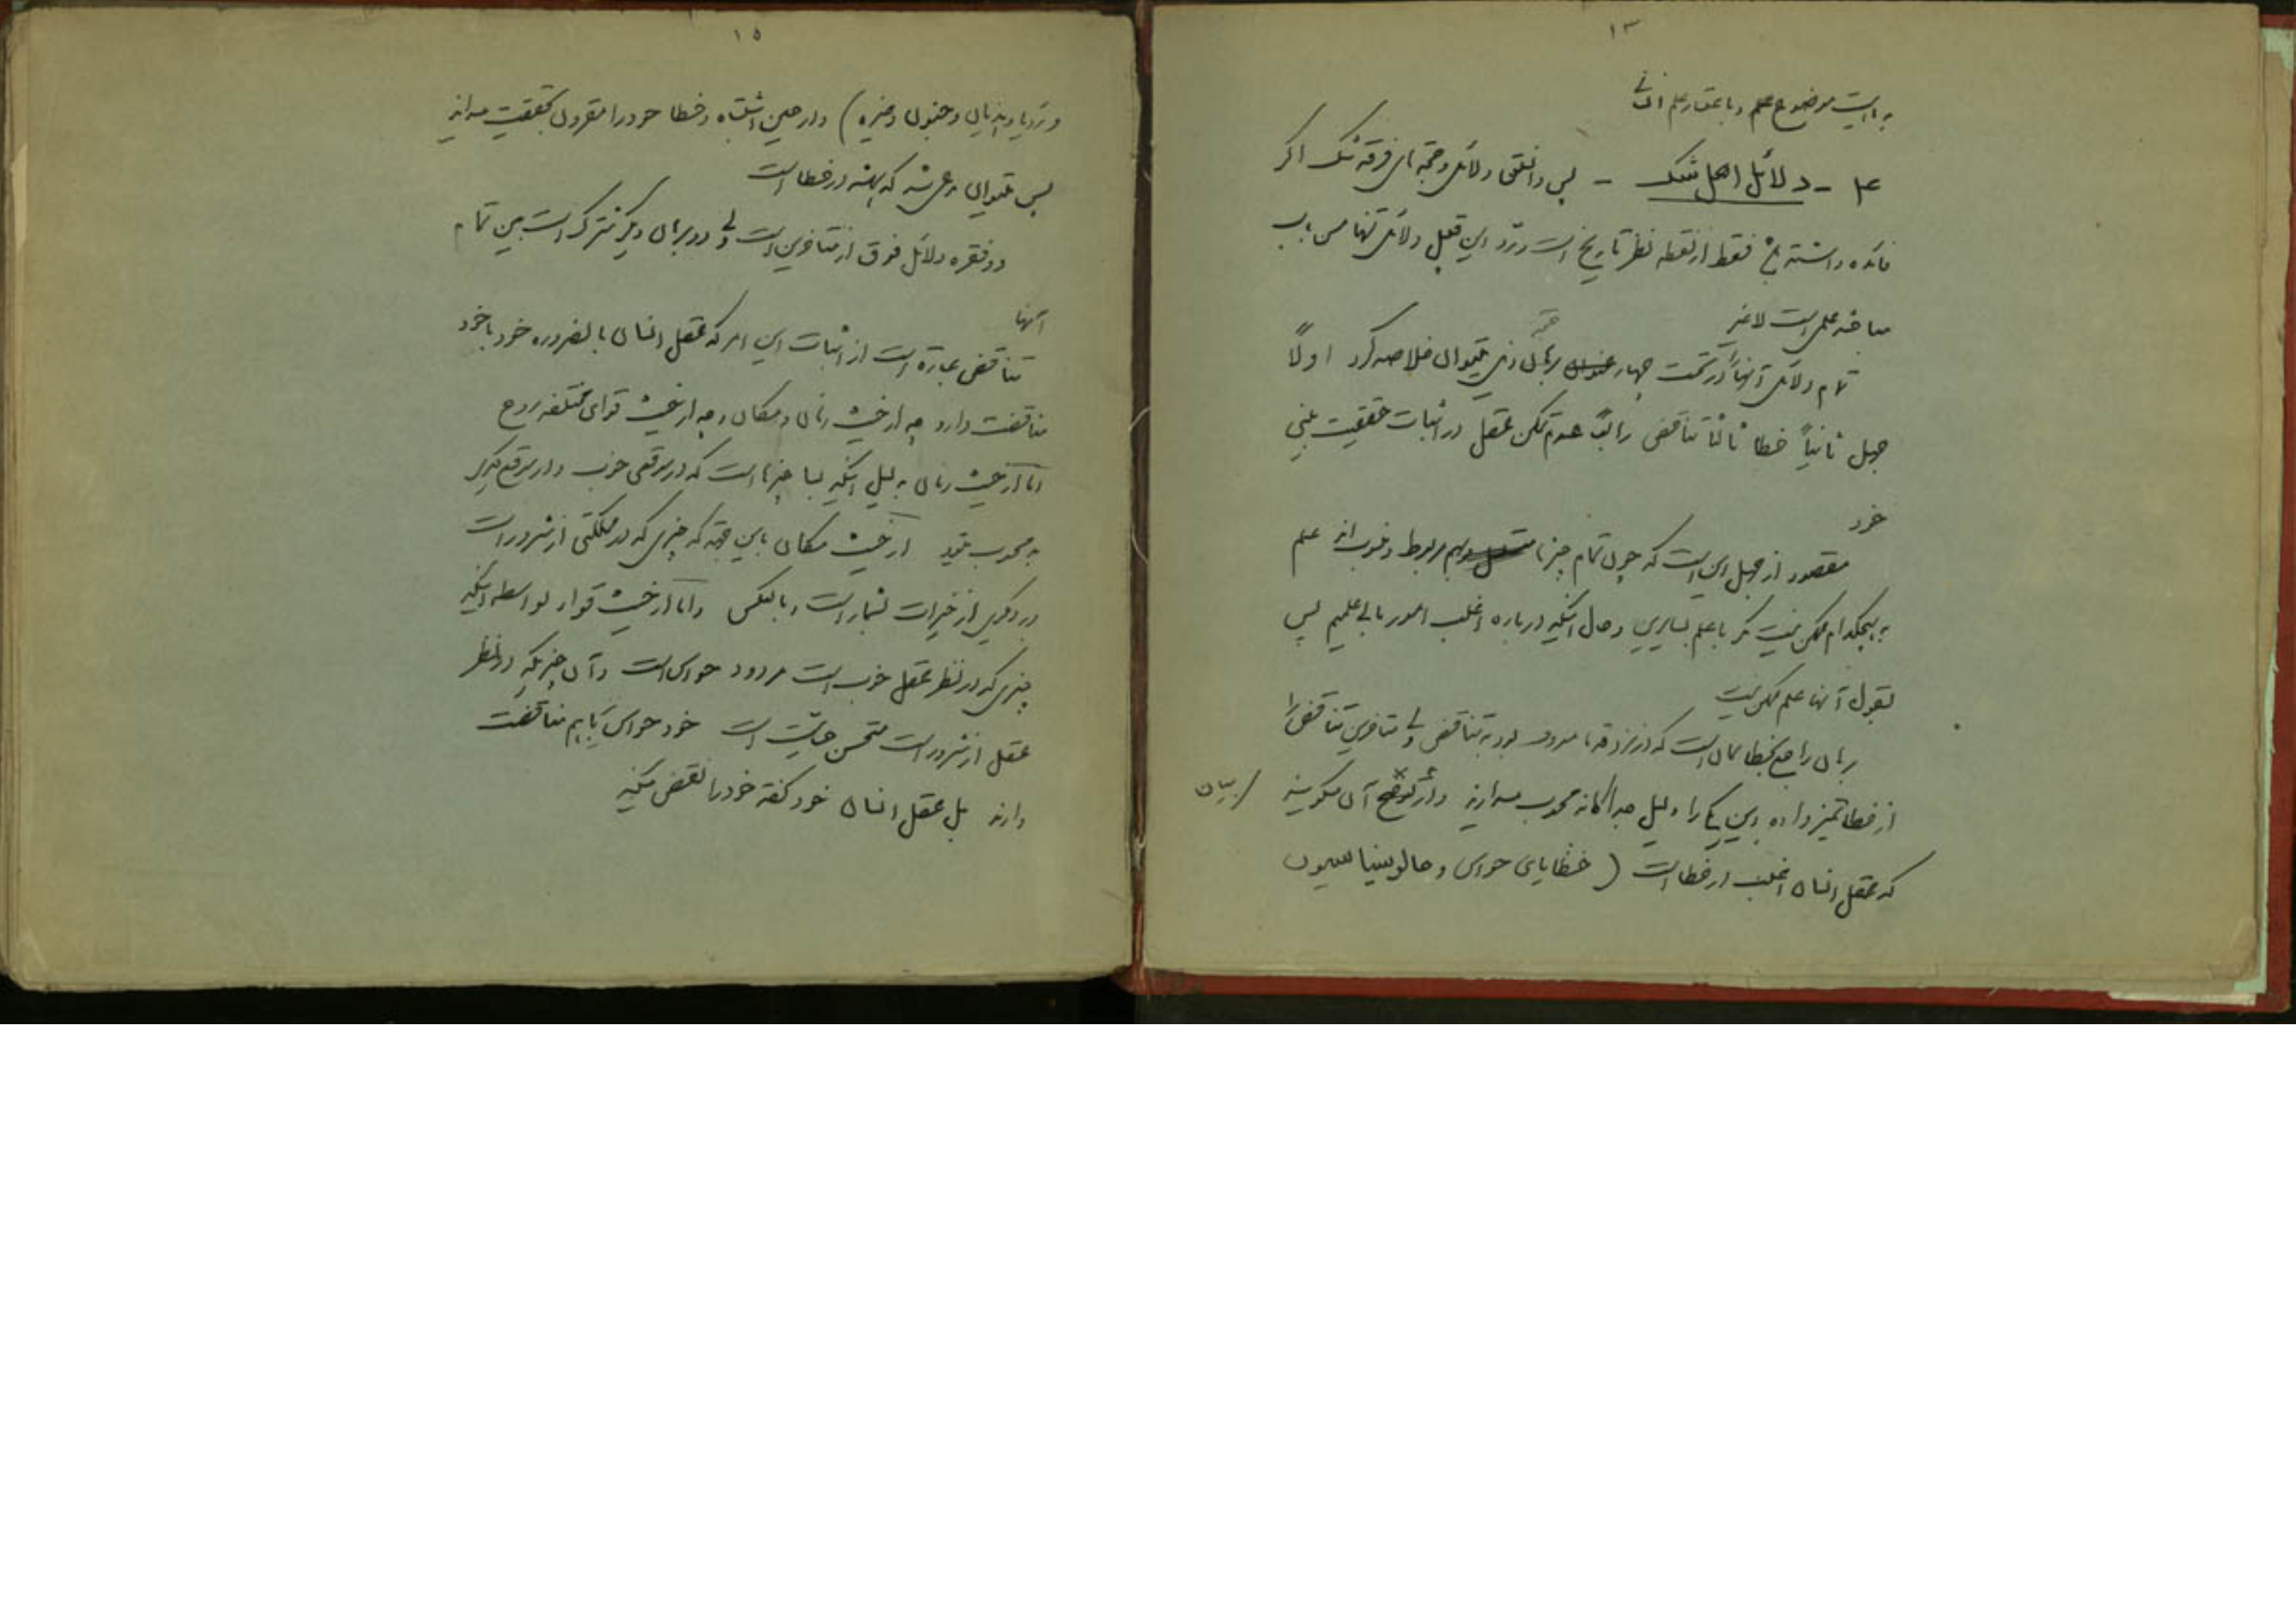 ۱۳
بداهت موضوع علم و باعتقاد علم انسانی
۴ - دلائل اهل شک - پس دانستن دلائل و حجة های فرقه شک اگر
فائده داشته باشد فقط از نقطه نظر تاریخ است و رد این قبیل دلائل تنها من باب
مباحثه علمی است لاغیر
تمام دلائل آنها را در تحت چهار عنوان برهان ذیل میتوان خلاصه کرد اولاً
جهل ثانیاً خطا ثالثاً تناقض رابعاً عدم تمکن عقل در اثبات حقیقت بینی
خود
مقصود از جهل این است که چون تمام چیزها بهم مربوط و منسوب اند علم
به هیچکدام ممکن نیست مگر با علم بسایرین و حال آنکه درباره اغلب امور ما بی علمیم پس
بقول آنها علم ممکن نیست
برهان راجع بخطا همان است که در نزد قدما معروف بود به تناقض ولی متاخرین تناقض را
از خطا تمیز داده و این یکی را دلیل جداگانه محسوب میدارند و در توضیح آن میگویند
که عقل انسان اغلب در خطا است ( خطایای حواس و هالوسیناسیون
۱۵
و رویا و هذیان و جنون و غیره ) و در عین اشتباه و خطا خود را مقرون بحقیقت میداند
پس میتوان مدعی شد که همیشه در خطا است
دو فقره دلائل فوق از متاخرین است ولی دو برهان دیگر مشترک است بین تمام
آنها
تناقض عبارة است از اثبات این امر که عقل انسان بالضروره خود باخود
مناقضت دارد چه از حیث زمان و مکان و چه از حیث قوای مختلفه روح
اما از حیث زمان بدلیل اینکه بسا چیزها است که در موقعی خوب و در موقع دیگر
بد محسوب میشود از حیث مکان باین جهة که چیزی که در مملکتی از شرور است
در دیگری از خیرات بشمار است و بالعکس و اما از حیث قوا بواسطه اینکه
چیزی که در نظر عقل خوب است مردود حواس است و آن چیزیکه در نظر
عقل از شرور است مستحسن حسیات است خود حواس نیز باهم مناقضت
دارند بل عقل انسان خود گفته خود را نقض میکند